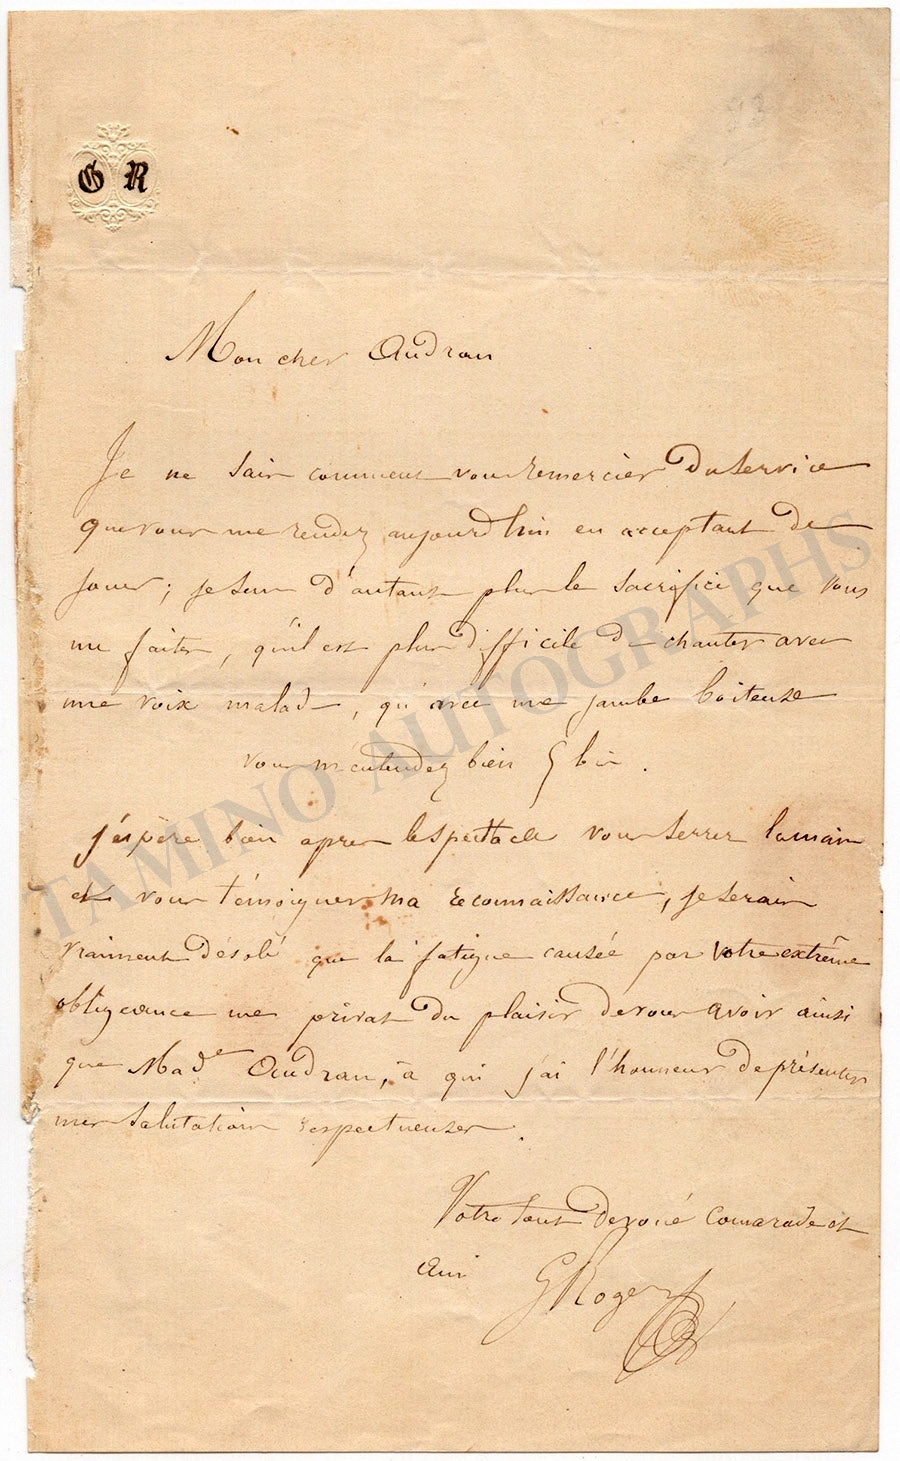 G R
93
Mon cher Audran
Je ne sais comment vous remercier du service
que vous me rendez aujourd'hui en acceptant de
jouer ; je sens d'autant plus le sacrifice que vous
me faites, qu'il est plus difficile de chanter avec
une voix malade, qu'avec une jambe boiteuse
vous m'entendez bien
j'espère bien après le spectacle vous serrer la main
et vous témoigner ma reconnaissance, je serais
vraiment désolé que la fatigue causée par votre extrême
obligeance me privat du plaisir de vous avoir ainsi
que Made Audran, à qui j'ai l'honneur de présenter
mes salutations respectueuses.
Votre tout dévoué camarade et
ami GRoger
TAMINO AUTOGRAPHS